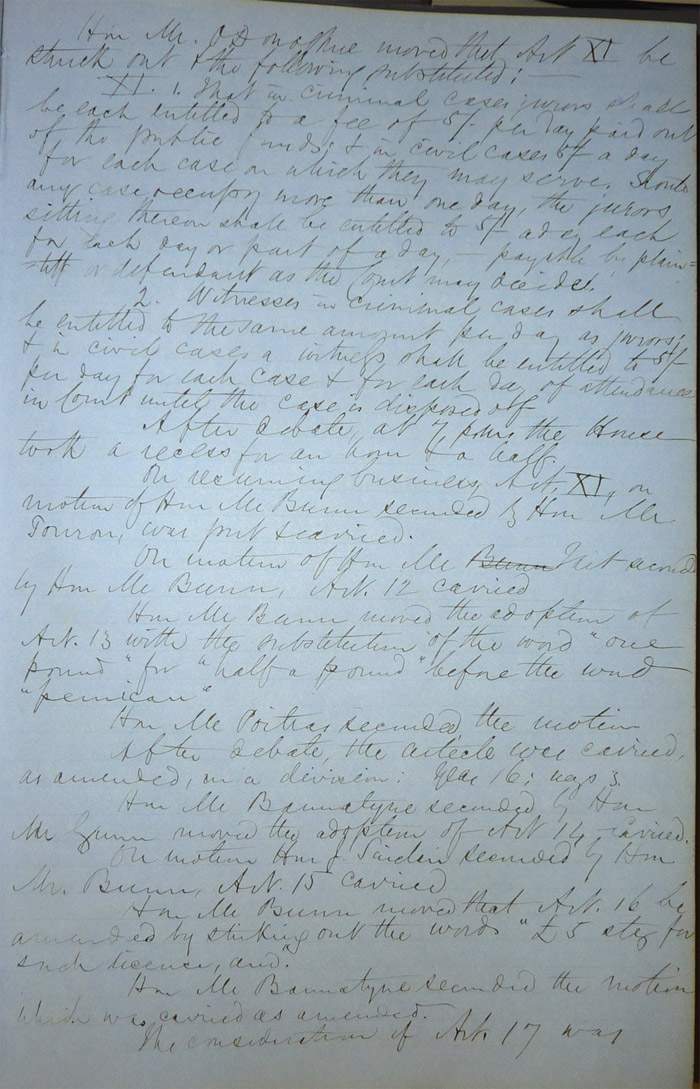 Hon Mr. O'Donoghue moved that Art XI be
struck out & the following substituted; —
XI. 1. That in criminal cases jurors shall
be each entitled to a fee of 5/- per day paid out
of the public funds & in civil cases 5/- a day
for each case on which they may serve. Should
any case occupy more than one day, the jurors
sitting thereon shall be entitled to 5/- a day each
for each day or part of a day, — payable by plain=
=tiff or defendant as the Court may decide.
2. Witnesses in criminal cases shall
be entitled to the same amount per day as jurors;
& in civil cases a witness shall be entitled to 5/-
per day for each case & for each day of attendance
in Court until the case is disposed off
After debate, at 7, p.m. the House
took a recess for an hour & a half.
On resuming business, Art. XI, on
motion of Hon Mr Bunn seconded by Hon Mr
Touron, was put & carried.
On motion of Hon Mr Bunn seconded
by Hon Mr Bunn, Art. 12 carried
Hon Mr Bunn moved the adoption of
Art. 13 with the substitution of the word "one
pound" for "half a pound" before the word
"pemican"
Hon Mr Poitras seconded the motion
After debate, the article was carried,
as amended, on a division: Yeas 16; nays 3.
Hon Mr Bannatyne seconded by Hon
Mr Gunn moved the adoption of Art 14, carried.
On motion Hon J. Sinclair seconded by Hon
Mr. Bunn, Art. 15 carried
Hon Mr Bunn moved that Art. 16 be
amended by striking out the words "£5 stg for
such license, and."
Hon Mr Bannatyne seconded the motion
which was carried as amended.
The consideration of Art. 17 was